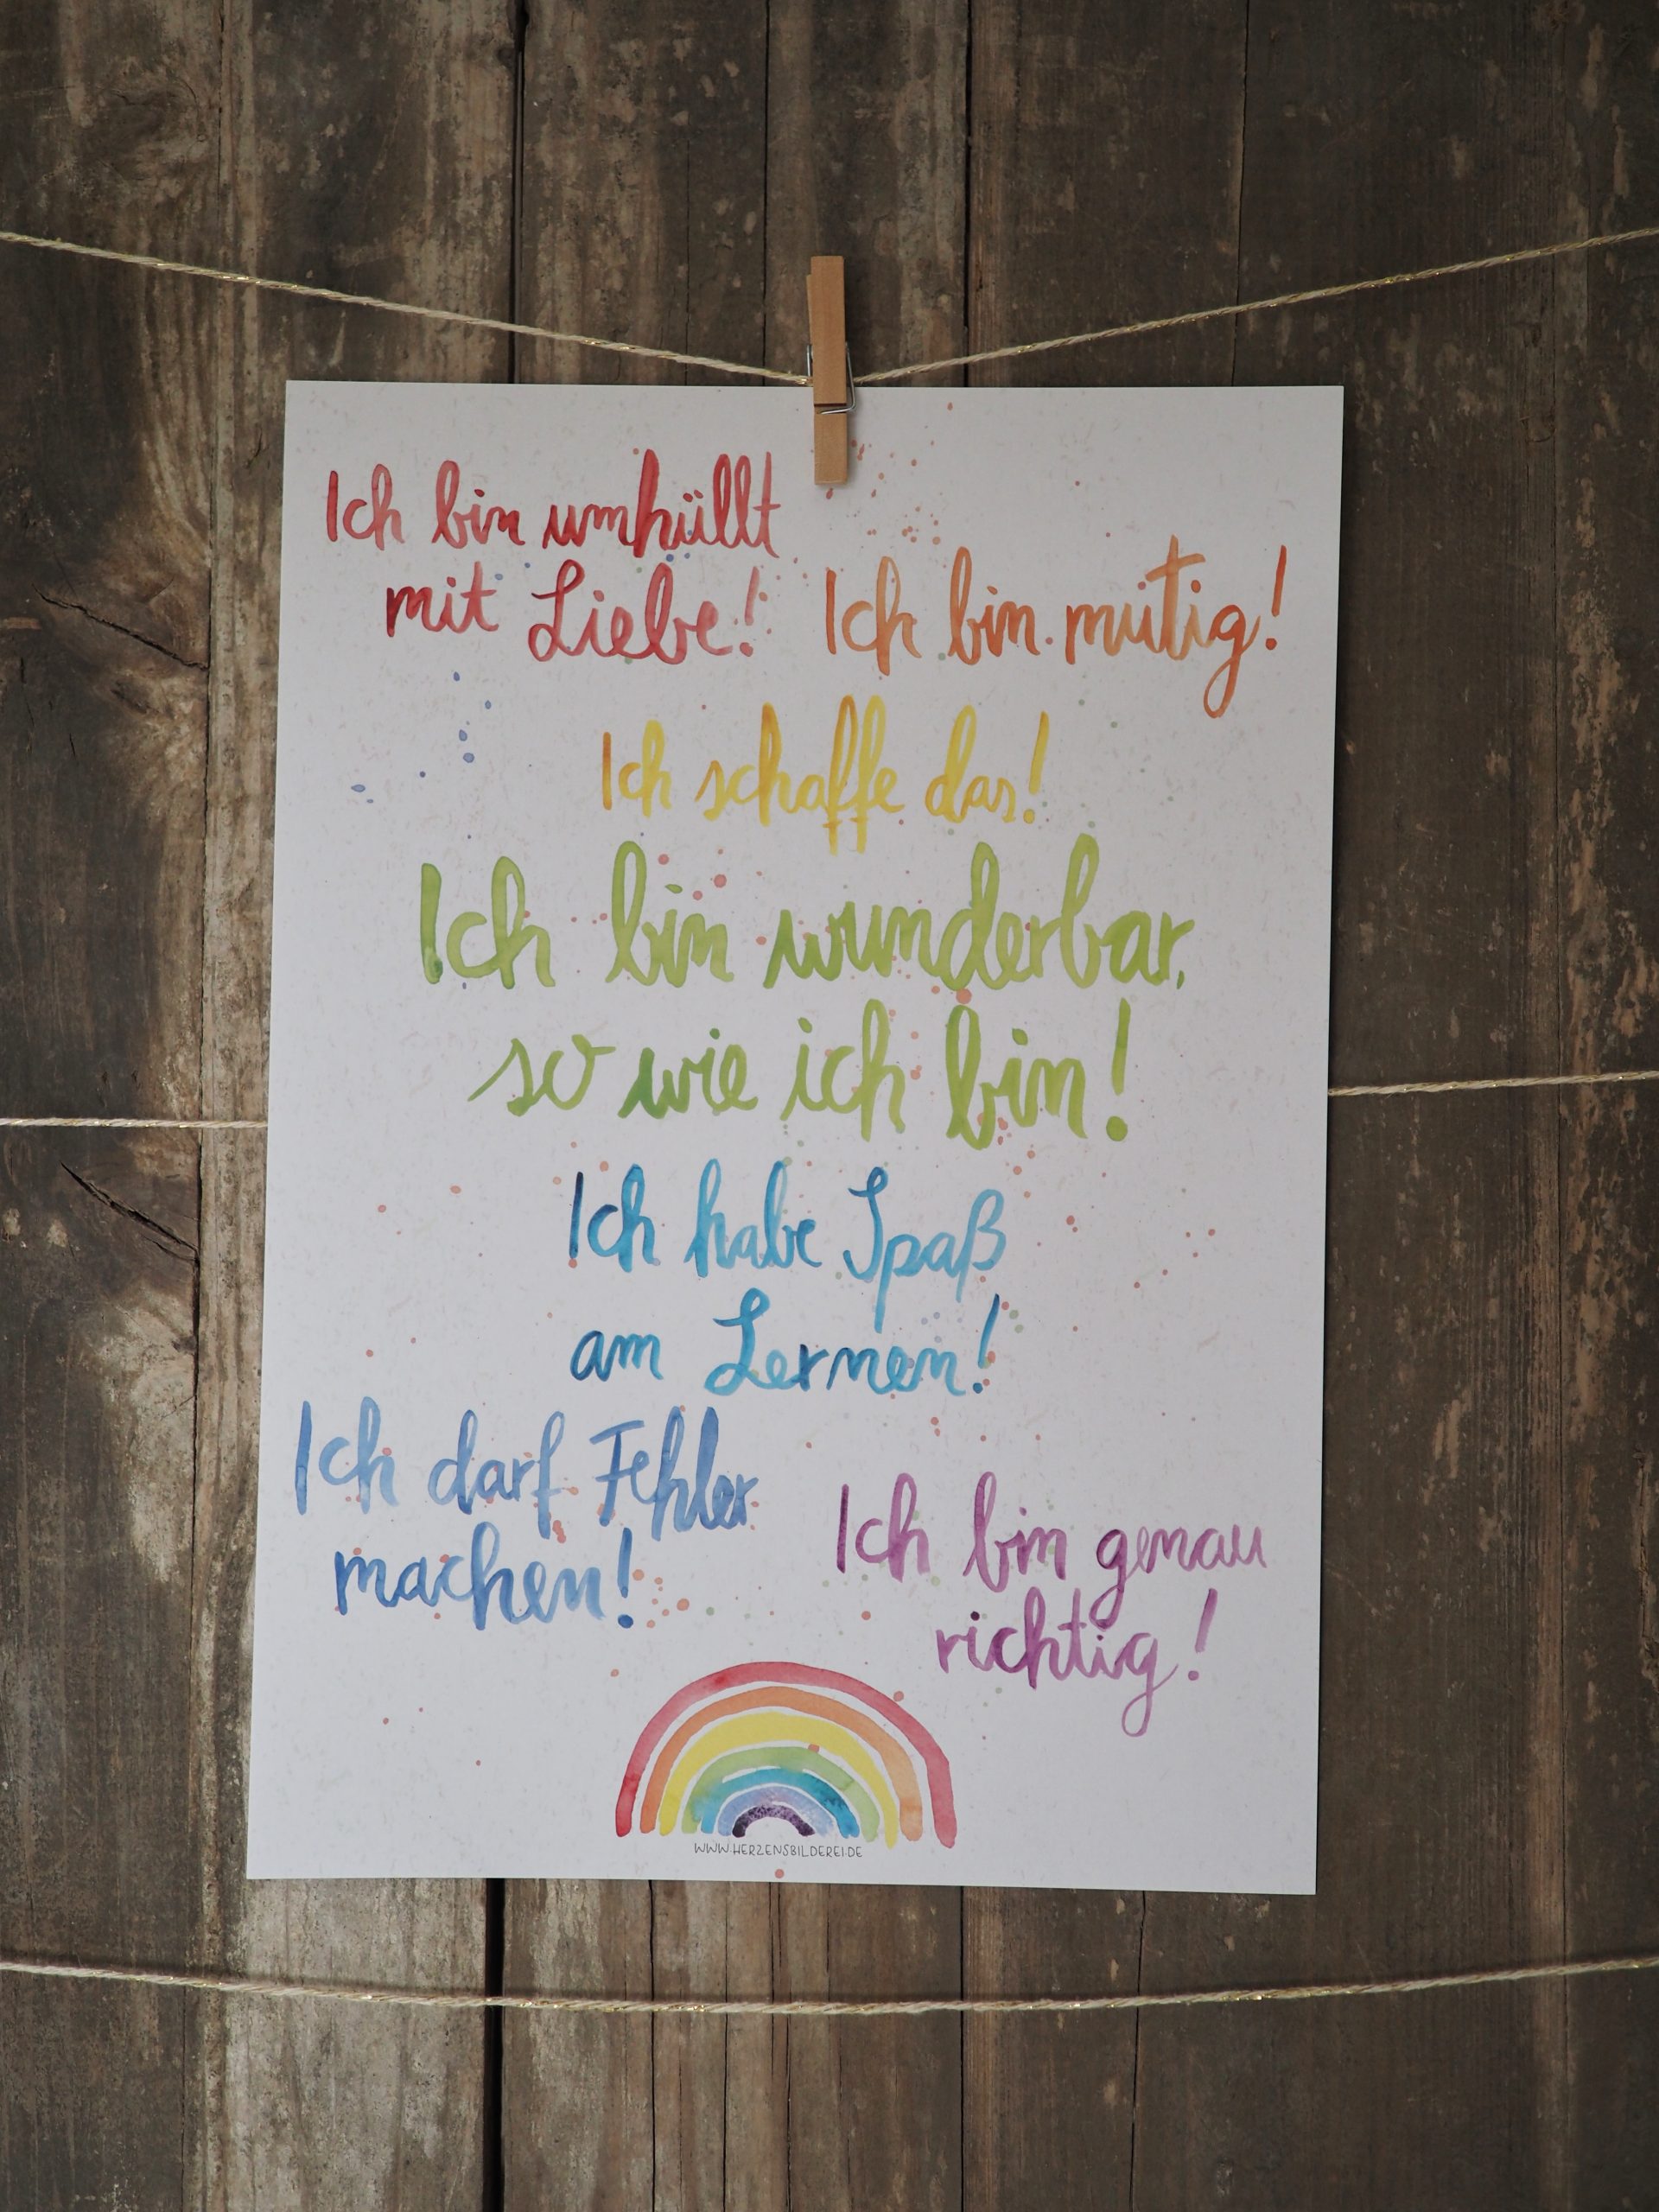 Ich bin umhüllt
mit Liebe!
Ich bin mutig!
Ich schaffe das!
Ich bin wunderbar,
so wie ich bin!
Ich habe Spaß
am Lernen!
Ich darf Fehler
machen!
Ich bin genau
richtig!
WWW.HERZENSBILDEREI.DE